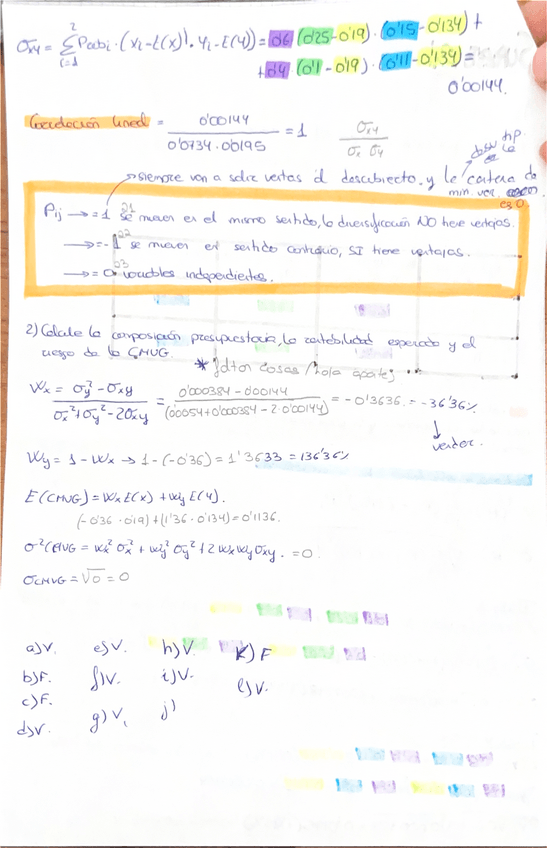 σxy = Σ Pabi · (xi - E(x)) · yi - E(y)) = 0'6 (0'25-0'19) · (0'15-0'134) +
i=1 2
+0'4 (0'1-0'19) · (0'11-0'134) =
0'00144.
Correlación lineal = 0'00144 / 0'0734 · 0'0195 = 1 σxy / σx σy
siempre van a salir ventas al descubierto. y la cartera de
min. var.
es 0.
Pij → = 1 se mueven en el mismo sentido, la diversificación NO tiene ventajas.
→ = -1 se mueven en sentido contrario, SI tiene ventajas.
→ = 0 variables independientes.
2) Calcule la composición presupuestaria, la rentabilidad esperada y el
riesgo de la CMVG.
* jdton cosas /hoja aparte;
Wx = σy² - σxy / σx² + σy² - 2σxy = 0'000384 - 0'00144 / (0'0054+0'000384 - 2·0'00144) = -0'3636. = -36'36%
↓
vender.
Wy = 1 - Wx → 1 - (-0'36) = 1'3633 = 136'36%
E(CMVG) = Wx E(x) + Wy E(y).
(-0'36 · 0'19) + (1'36 · 0'134) = 0'1136.
σ²CMVG = Wx² σx² + Wy² σy² + 2 Wx Wy σxy. = 0.
σCMVG = √0 = 0
a) V. e) V. h) V. k) F
b) F. f) V. i) V. l) V.
c) F.
g) V, j)
d) V.